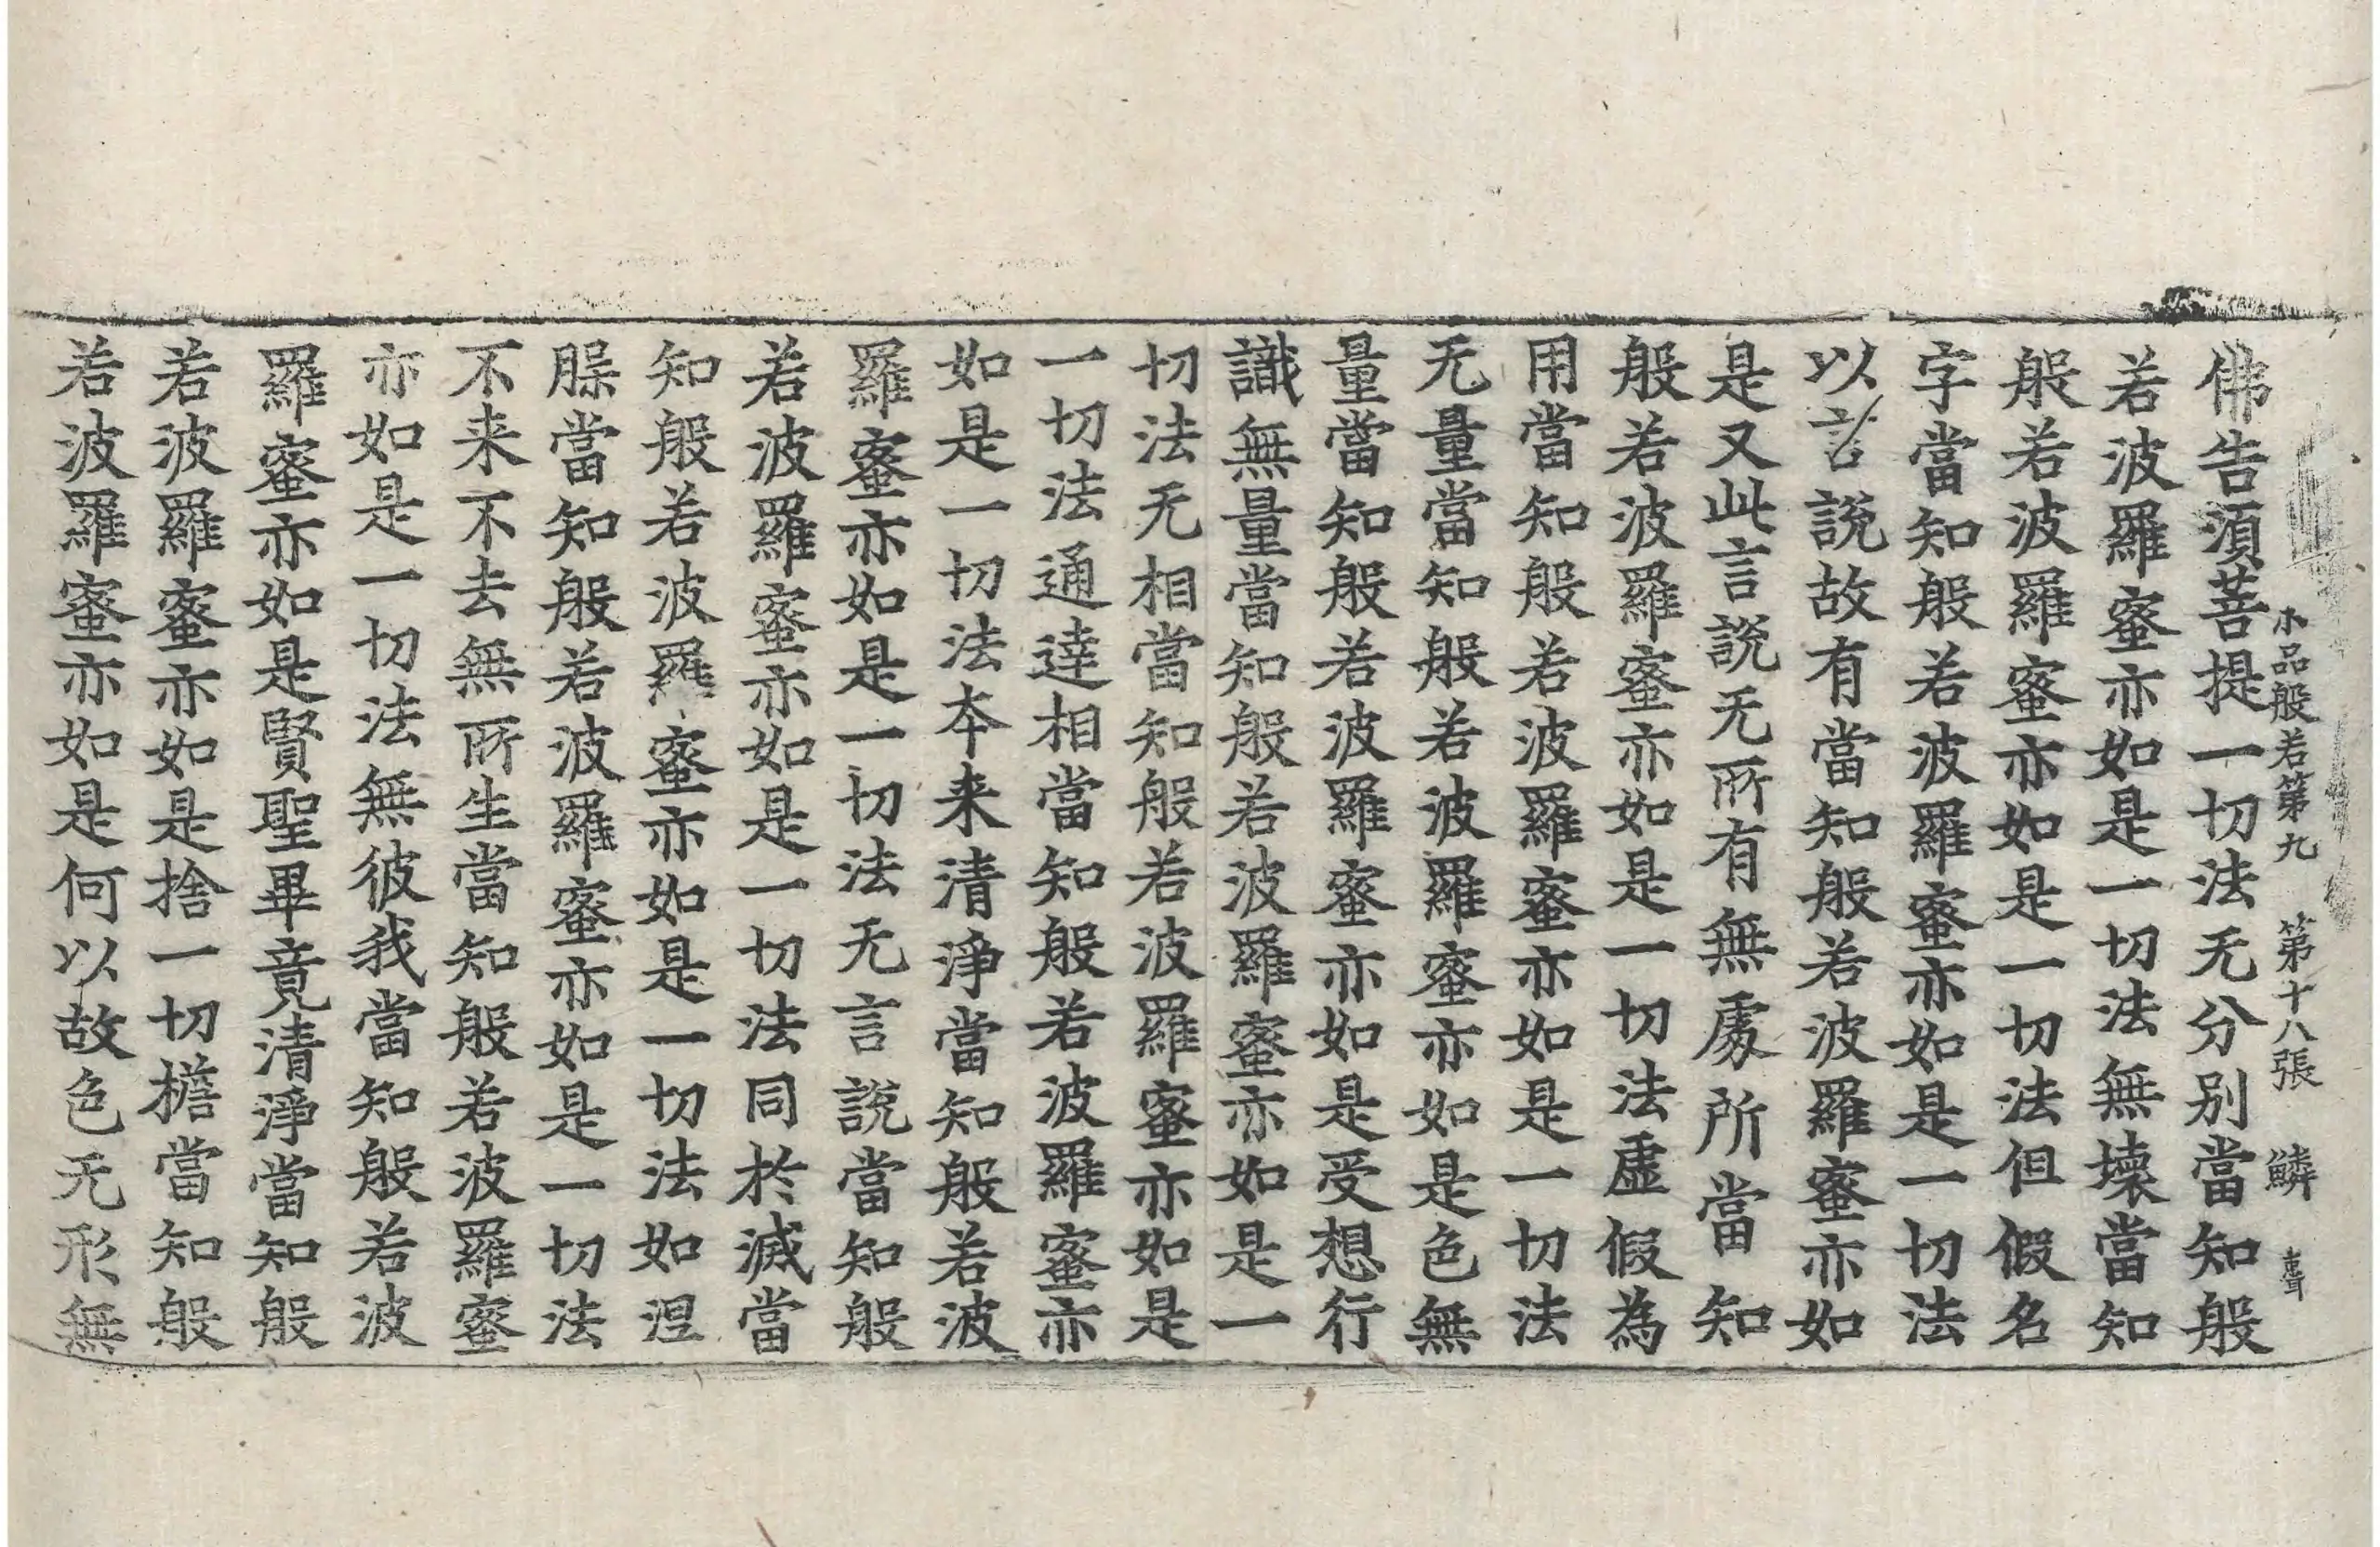 小品般若第九　第十八張　鱗
佛告須菩提一切法无分別當知般
若波羅蜜亦如是一切法無壞當知
般若波羅蜜亦如是一切法但假名
字當知般若波羅蜜亦如是一切法
以言說故有當知般若波羅蜜亦如
是又此言說无所有無處所當知
般若波羅蜜亦如是一切法虛假為
用當知般若波羅蜜亦如是一切法
无量當知般若波羅蜜亦如是色無
量當知般若波羅蜜亦如是受想行
識無量當知般若波羅蜜亦如是一
切法无相當知般若波羅蜜亦如是
一切法通達相當知般若波羅蜜亦
如是一切法夲来清淨當知般若波
羅蜜亦如是一切法无言說當知般
若波羅蜜亦如是一切法同於滅當
知般若波羅蜜亦如是一切法如涅
槃當知般若波羅蜜亦如是一切法
不来不去無所生當知般若波羅蜜
亦如是一切法無彼我當知般若波
羅蜜亦如是賢聖畢竟清淨當知般
若波羅蜜亦如是捨一切檐當知般
若波羅蜜亦如是何以故色无形無